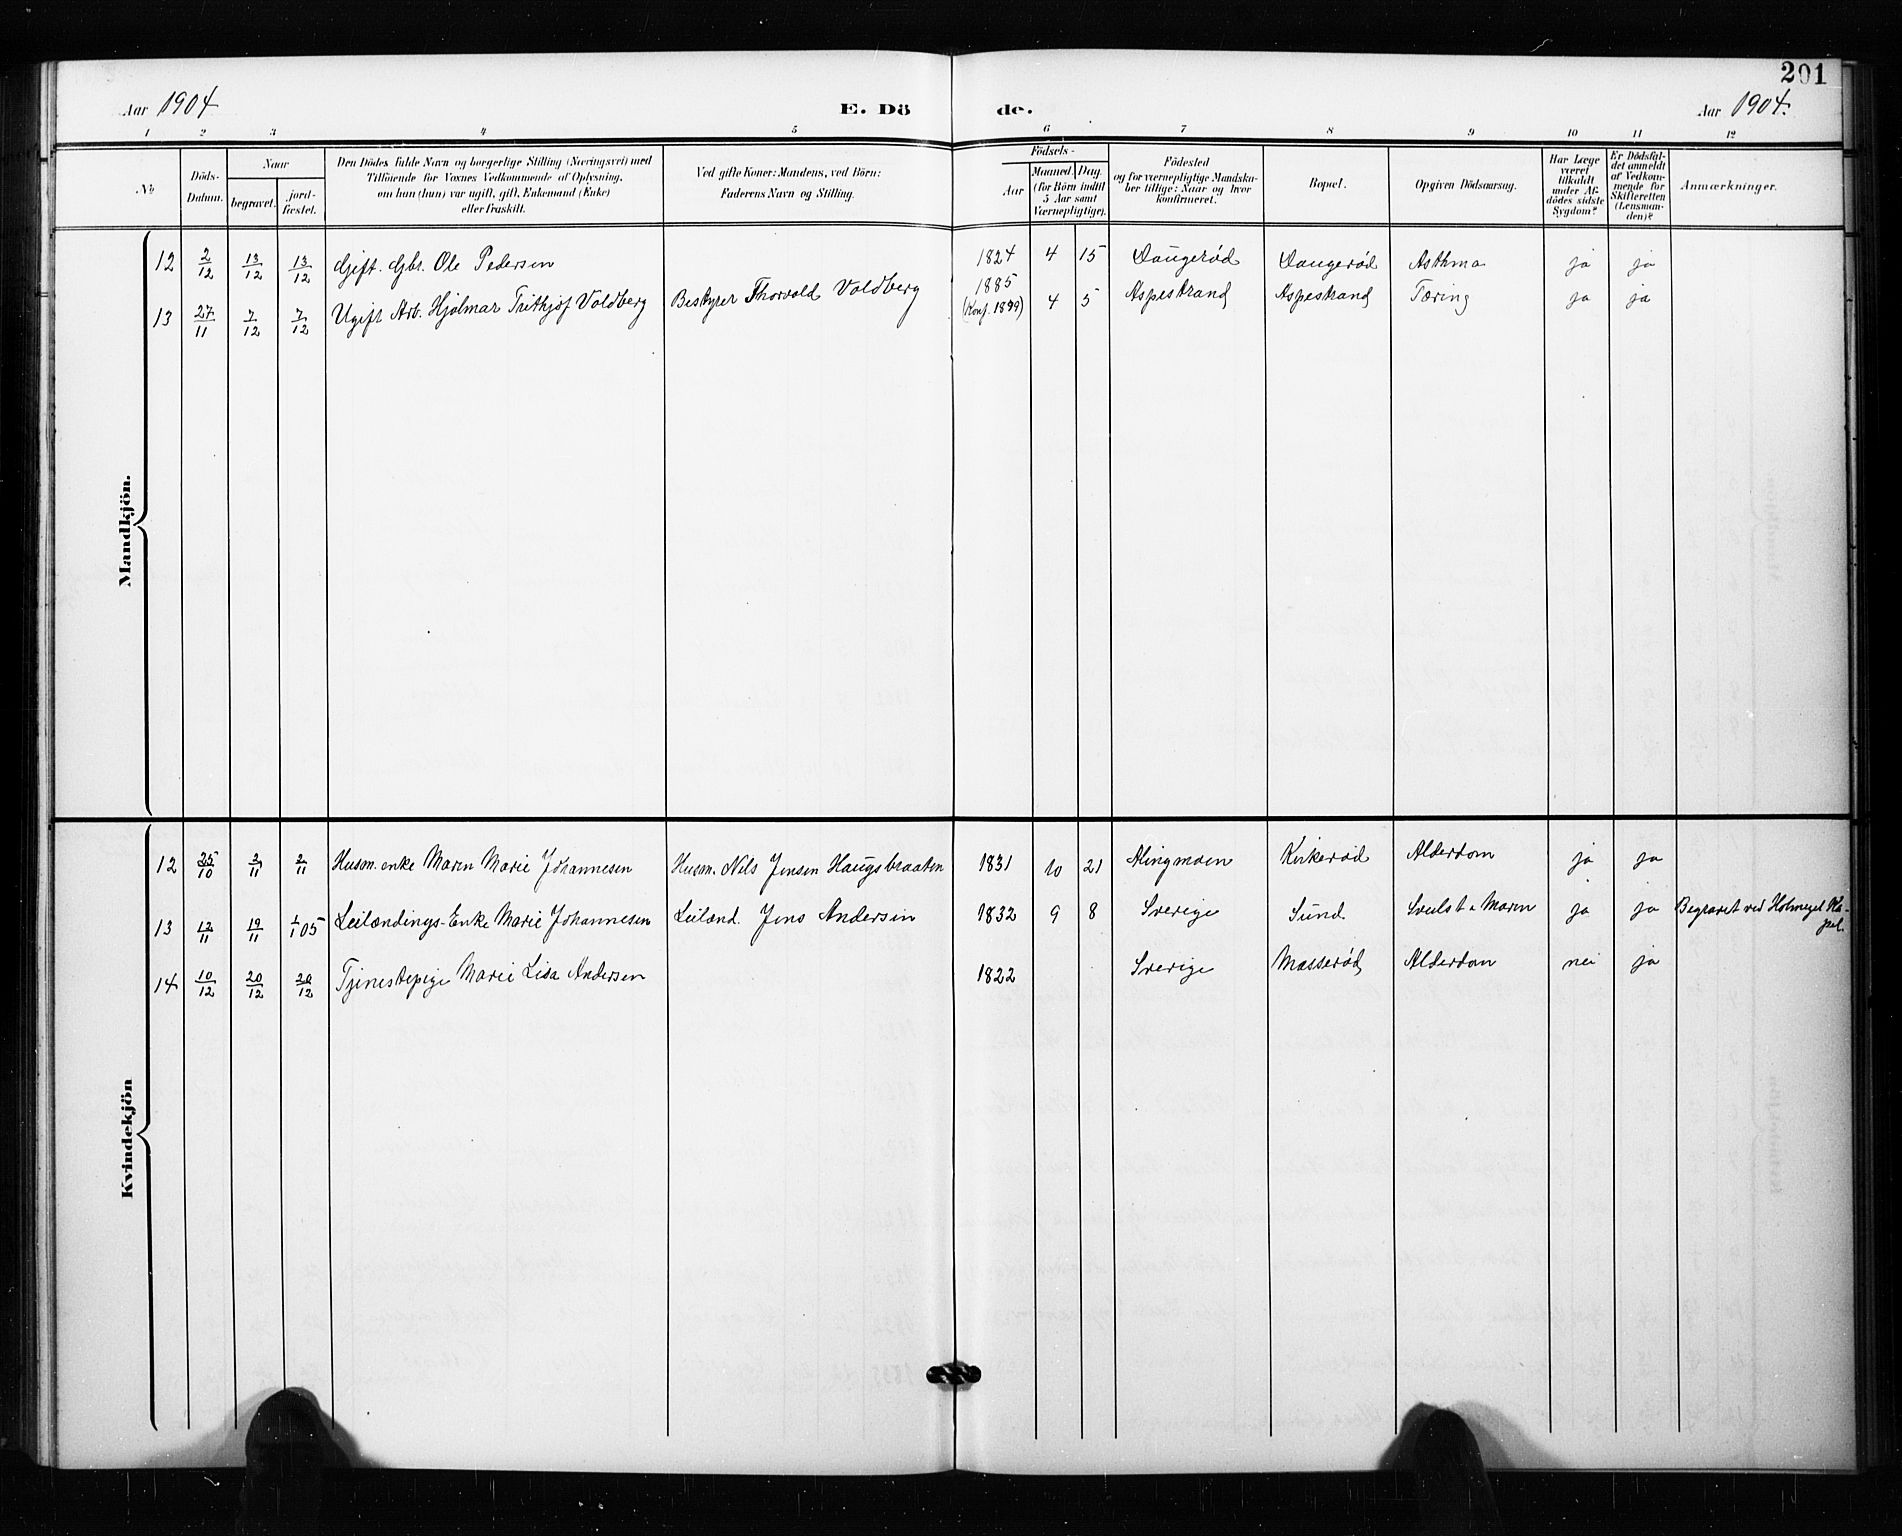 201
Aar 1904 E. Dö de. Aar 1904.
1 2 3 4 5 6 7 8 9 10 11 12
No
Döds-
Datum.
Naar
begravet.
jord-
fæstet.
Den Dödes fulde Navn og borgerlige Stilling (Næringsvei) med
Tilföiende for Voxnes Vedkommende af Oplysning,
om han (hun) var ugift, gift, Enkemand (Enke)
eller fraskilt.
Ved gifte Koner: Mandens, ved Börn:
Faderens Navn og Stilling.
Födsels-
Aar
Maaned. Dag.
(for Börn indtil
5 Aar samt
Værnepligtige).
Födested
og for værnepligtige Mandska-
ber tillige: Naar og hvor
konfirmeret.
Bopæl.
Opgiven Dödsaarsag.
Har Læge
været
tilkaldt
under Af-
dödes sidste
Sygdom?
Er Dödsfal-
det anmeldt
af Vedkom-
mende for
Skifteretten
(Lensman-
den)?
Anmærkninger.
Mandkjön.
12 2/12 13/12 13/12 Gift. Gbr. Ole Pedersen 1824 4 15 Daugerød Daugerød Asthma ja ja
13 27/11 7/12 7/12 Ugift Arb. Hjalmar Frithjof Valdberg Bestyrer Thorvald Valdberg 1885 (Konf. 1899) 4 5 Aspestrand Aspestrand Tæring ja ja
Kvindekjön
12 25/10 2/11 2/11 Husm. enke Maren Marie Johannesen Husm. Nils Jensen Haugsbraaten 1831 10 21 Alingmoen Kirkerød Alderdom ja ja
13 12/11 19/11 1/1 05 Leilændings-Enke Marie Johannesen Leilænd. Jens Andersen 1832 9 8 Sverige Sund Svulst i Maven ja ja Begravet ved Holmegil Ka-
pel.
14 10/12 20/12 20/12 Tjenestepige Marie Lisa Andersen 1822 Sverige Masserød Alderdom nei ja